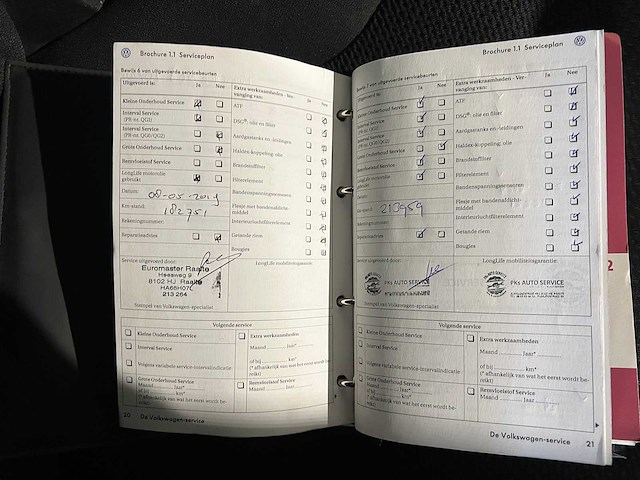 Brochure 1.1 Serviceplan
Bewijs 6 van uitgevoerde servicebeurten
Uitgevoerd is: Ja Nee
Kleine Onderhoud Service
Interval Service
(PR-nr. QG1)
Interval Service
(PR-nr. QG0/QG2)
Grote Onderhoud Service
Remvloeistof Service
LongLife motorolie
gebruikt
Datum: 08-05-2021
Km-stand: 182751
Rekeningnummer:
Reparatieadvies
Extra werkzaamheden - Ver-
vanging van: Ja Nee
ATF
DSG®: olie en filter
Aardgastanks en -leidingen
Haldex-koppeling: olie
Brandstoffilter
Filterelement
Bandenspanningssensoren
Flesje met bandenafdicht-
middel
Interieurluchtfilterelement
Getande riem
Bougies
Service uitgevoerd door:
Euromaster Raalte
Heesweg 9
8102 HJ Raalte
HA66H07L
213 264
Stempel van Volkswagen-specialist
LongLife mobiliteitsgarantie:
Volgende service
Kleine Onderhoud Service
Interval Service
Volgens variabele service-intervalindicatie
Grote Onderhoud Service
Maand Jaar*
of bij km*
(* afhankelijk van wat het eerst wordt be-
reikt)
Extra werkzaamheden
Maand Jaar*
of bij km*
(* afhankelijk van wat het eerst wordt be-
reikt)
Remvloeistof Service
Maand Jaar
20 De Volkswagen-service
Brochure 1.1 Serviceplan
Bewijs 7 van uitgevoerde servicebeurten
Uitgevoerd is: Ja Nee
Kleine Onderhoud Service
Interval Service
(PR-nr. QG1)
Interval Service
(PR-nr. QG0/QG2)
Grote Onderhoud Service
Remvloeistof Service
LongLife motorolie
gebruikt
Datum:
Km-stand: 210959
Rekeningnummer:
Reparatieadvies
Extra werkzaamheden - Ver-
vanging van: Ja Nee
ATF
DSG®: olie en filter
Aardgastanks en -leidingen
Haldex-koppeling: olie
Brandstoffilter
Filterelement
Bandenspanningssensoren
Flesje met bandenafdicht-
middel
Interieurluchtfilterelement
Getande riem
Bougies
Service uitgevoerd door:
PKs AUTO SERVICE
Stempel van Volkswagen-specialist
LongLife mobiliteitsgarantie:
PKs AUTO SERVICE
Volgende service
Kleine Onderhoud Service
Interval Service
Volgens variabele service-intervalindicatie
Grote Onderhoud Service
Maand Jaar*
of bij km*
(* afhankelijk van wat het eerst wordt be-
reikt)
Extra werkzaamheden
Maand Jaar*
of bij km*
(* afhankelijk van wat het eerst wordt be-
reikt)
Remvloeistof Service
Maand Jaar
De Volkswagen-service 21
2